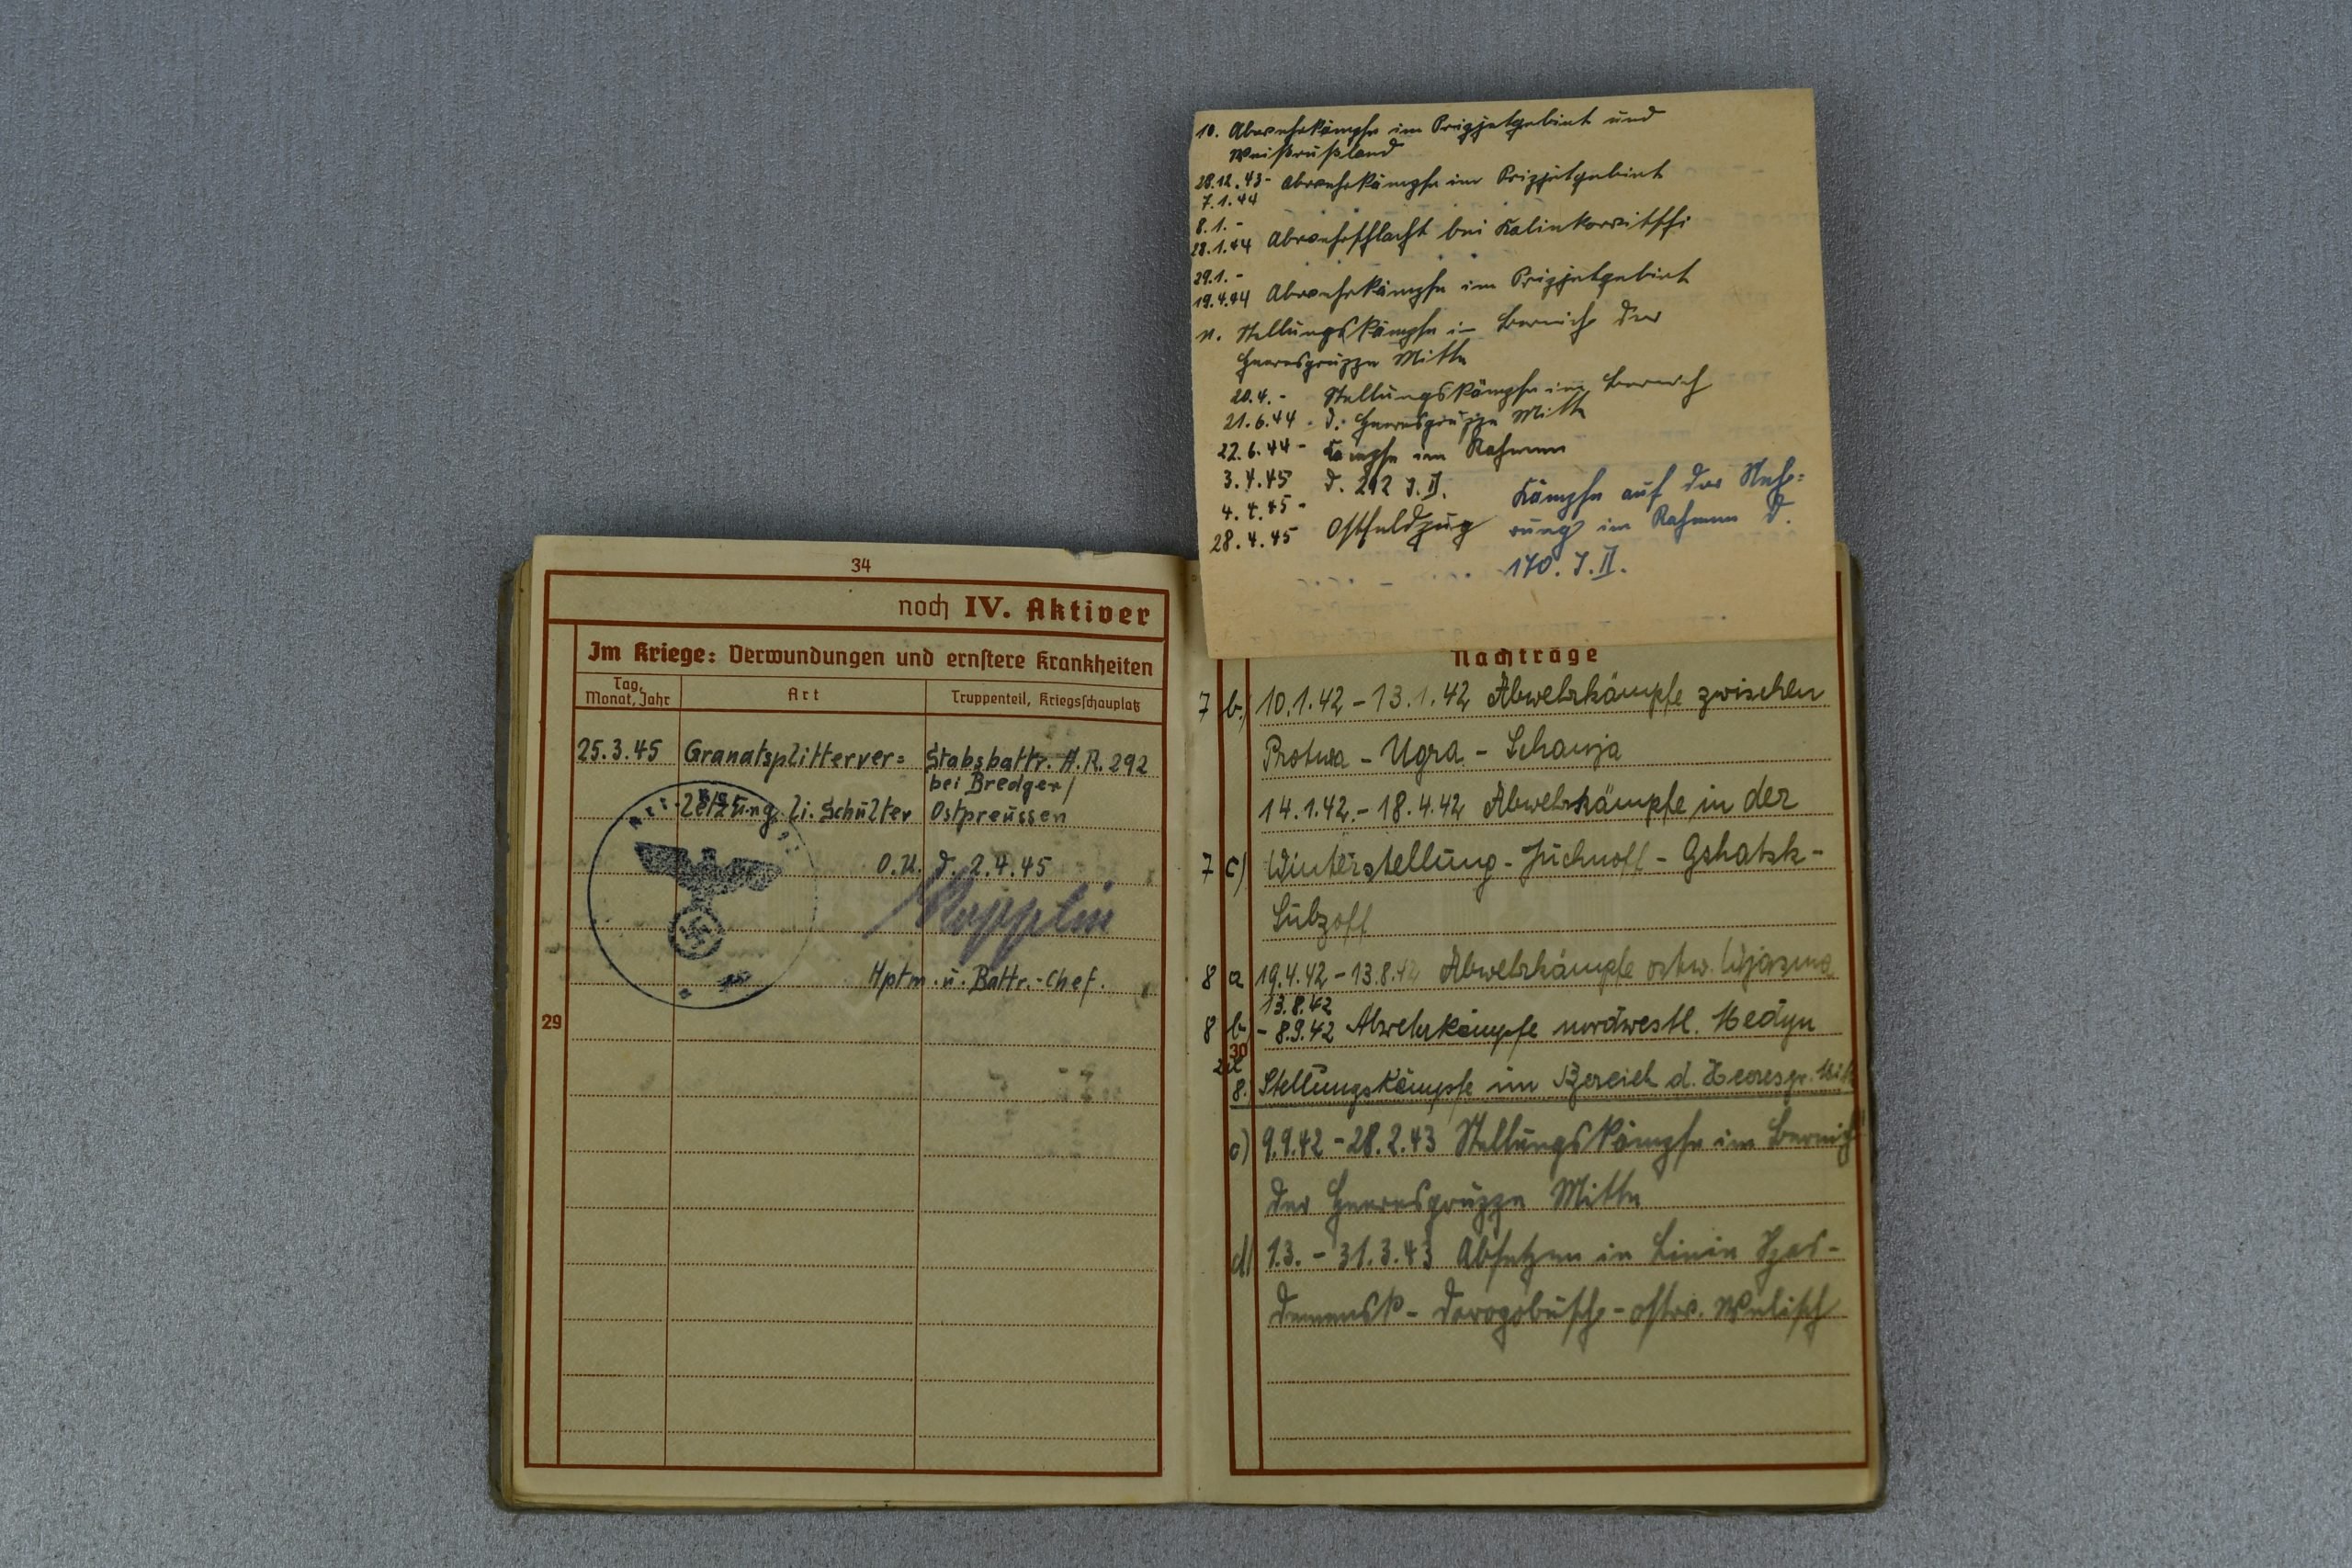 34
noch IV. Aktiver
Im Kriege: Verwundungen und ernstere Krankheiten
Tag, Monat, Jahr
Art
Truppenteil, Kriegsschauplatz
25.3.45 Granatsplitterver= Stabsbattr. A.R. 292
bei Bredgen/
letzung li. Schulter Ostpreussen
O.U. d. 2.4.45
Hptm. u. Battr.-Chef.
29
10. Abwehrkämpfe im Pripjetgebiet und
Weißrußland
28.12.43- Abwehrkämpfe im Pripjetgebiet
7.1.44
8.1.-
28.1.44 Abwehrschlacht bei Kalinkowitschi
29.1.-
19.4.44 Abwehrkämpfe im Pripjetgebiet
11. Stellungskämpfe im Bereich der
Heeresgruppe Mitte
20.4.- Stellungskämpfe im Bereich
21.6.44 d. Heeresgruppe Mitte
22.6.44- Kämpfe im Rahmen
3.4.45 d. 292 J.D. Kämpfe auf der Neh=
4.4.45- rung im Rahmen d.
28.4.45 Ostfeldzug 170. J.D.
Nachträge
7 b.) 10.1.42 - 13.1.42 Abwehrkämpfe zwischen
Protwa - Ugra - Schanja
14.1.42. - 18.4.42 Abwehrkämpfe in der
7 c) Winterstellung - Juchnoff - Gshatsk -
Subzoff
8 a 19.4.42 - 13.8.42 Abwehrkämpfe ostw. Wjasma
13.8.42
8 b) - 8.9.42 Abwehrkämpfe nordwestl. Medyn
30
8.) Stellungskämpfe im Bereich d. Heeresgr. Mitte
c) 9.9.42 - 28.2.43 Stellungskämpfe im Bereich
der Heeresgruppe Mitte
d) 1.3. - 31.3.43 Absetzen in Linie Spas-
Demensk - Dorogobusch - ostw. Welisch